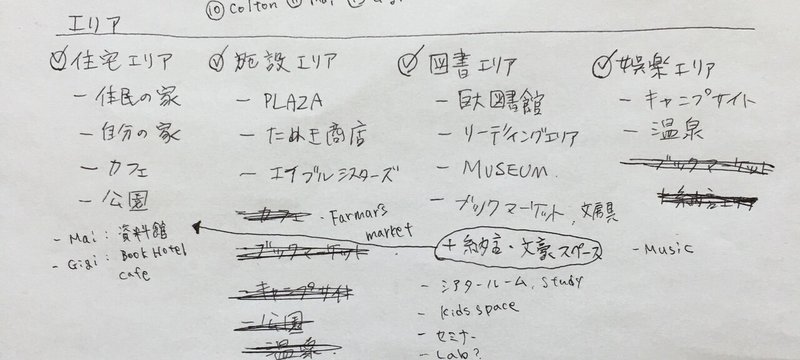 ⑩ Colton
エリア
住宅エリア
- 住民の家
- 自分の家
- カフェ
- 公園
- Mai : 資料館
- Gigi : Book Hotel
cafe
施設エリア
- PLAZA
- たぬき商店
- エイブルシスターズ
- カフェ
- Farmar's
market
- ブックマーケット
- キャンプサイト
- 公園
- 温泉
図書エリア
- 巨大図書館
- リーディングエリア
- MUSEUM
- ブックマーケット, 文房具
+ 納言・文豪スペース
- シアタールーム, study
- Kids space
- セミナー
- Lab?
娯楽エリア
- キャンプサイト
- 温泉
- ブックマーケット
- Music